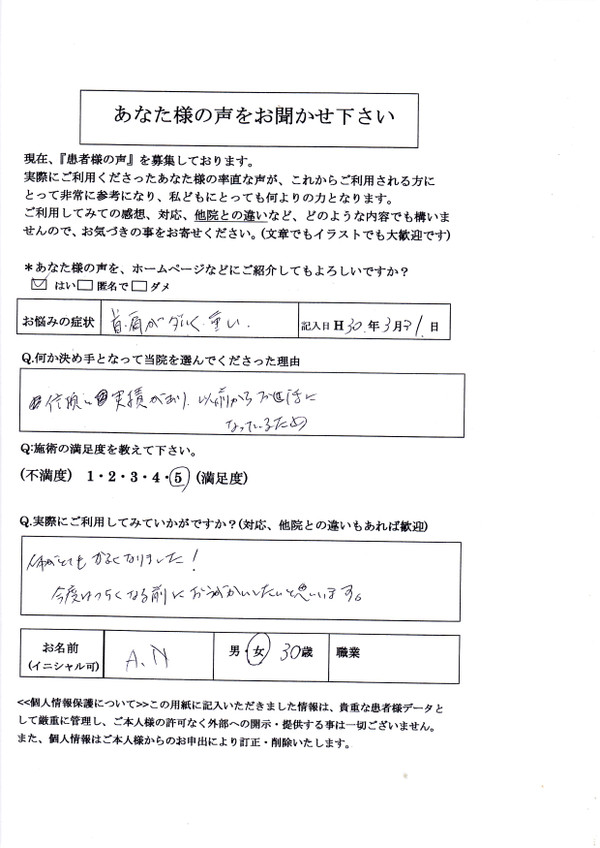 あなた様の声をお聞かせ下さい
現在、『患者様の声』を募集しております。
実際にご利用くださったあなた様の率直な声が、これからご利用される方に
とって非常に参考になり、私どもにとっても何よりの力となります。
ご利用してみての感想、対応、他院との違いなど、どのような内容でも構いま
せんので、お気づきの事をお寄せください。(文章でもイラストでも大歓迎です)
*あなた様の声を、ホームページなどにご紹介してもよろしいですか？
はい 匿名で ダメ
お悩みの症状 首.肩がダルく.重い. 記入日 H30.年3月31.日
Q.何か決め手となって当院を選んでくださった理由
信頼と実績があり、以前からお世話に
なっているため
Q:施術の満足度を教えて下さい。
(不満度) 1・2・3・4・5 (満足度)
Q.実際にご利用してみていかがですか？(対応、他院との違いもあれば歓迎)
体がとてもかるくなりました！
今度はつらくなる前におうかがいしたいと思います。
お名前 (イニシャル可) A.N 男・女 30歳 職業
<<個人情報保護について>>この用紙に記入いただきました情報は、貴重な患者様データと
して厳重に管理し、ご本人様の許可なく外部への開示・提供する事は一切ございません。
また、個人情報はご本人様からのお申出により訂正・削除いたします。